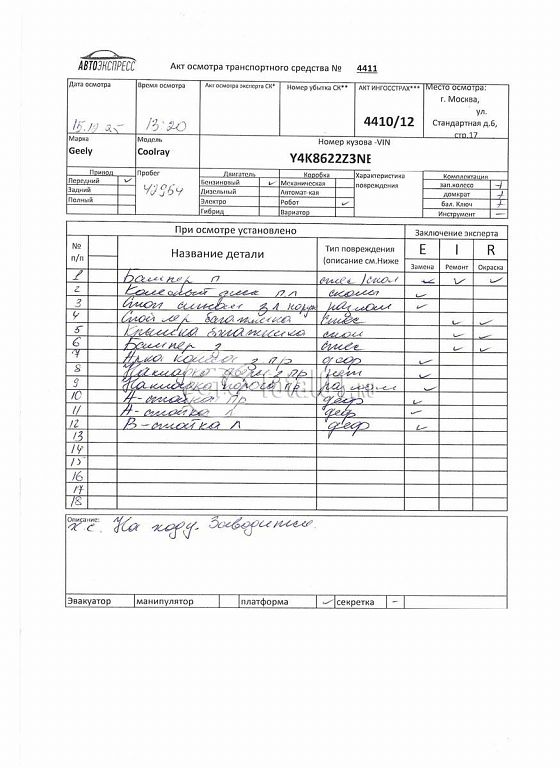 АВТОЭКСПРЕСС
Акт осмотра транспортного средства № 4411
Дата осмотра Время осмотра Акт осмотра эксперта СК* Номер убытка СК** АКТ ИНГОССТРАХ*** Место осмотра:
г. Москва,
ул.
13:20 4410/12 Стандартная д.6,
стр.17
Марка Модель Номер кузова -VIN
Geely Coolray Y4K8622Z3NE
Привод Пробег Двигатель Коробка Характеристика повреждения Комплектация
Передний ✓ Бензиновый ✓ Механическая зап.колесо +
Задний Дизельный Автомат-кая домкрат +
Полный Электро Робот ✓ бал. Ключ +
Гибрид Вариатор Инструмент –
При осмотре установлено Заключение эксперта
№ п/п Название детали Тип повреждения (описание см.Ниже E I R
Замена Ремонт Окраска
1 Бампер п смещ/скол ✓ ✓ ✓
2 Колесный диск п л сколы ✓
3 Стоп сигнал з л наруж разлом ✓
4 Спойлер багажника ✓ ✓
5 Крышка багажника скол ✓ ✓
6 Бампер з ✓ ✓
7 Арка з пр деф ✓
8 Накладка двери з пр нет ✓
9 Накладка порога пр разлом ✓
10 А-стойка пр деф ✓
11 А-стойка л деф ✓
12 В-стойка л деф ✓
13
14
15
16
17
18
Описание:
х.с. На ходу. Заводится.
Эвакуатор манипулятор платформа ✓ секретка –